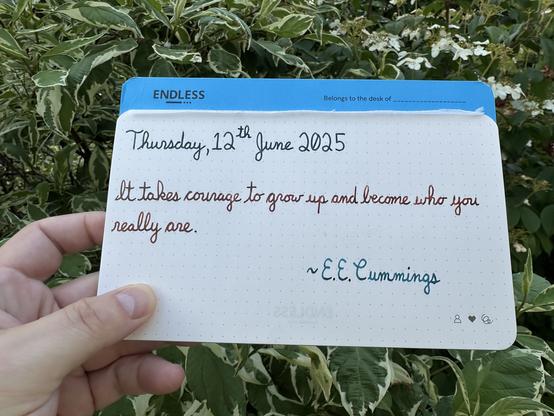 ENDLESS
Belongs to the desk of
Thursday, 12th June 2025
It takes courage to grow up and become who you
really are.
~ E.E. Cummings
ENDLESS